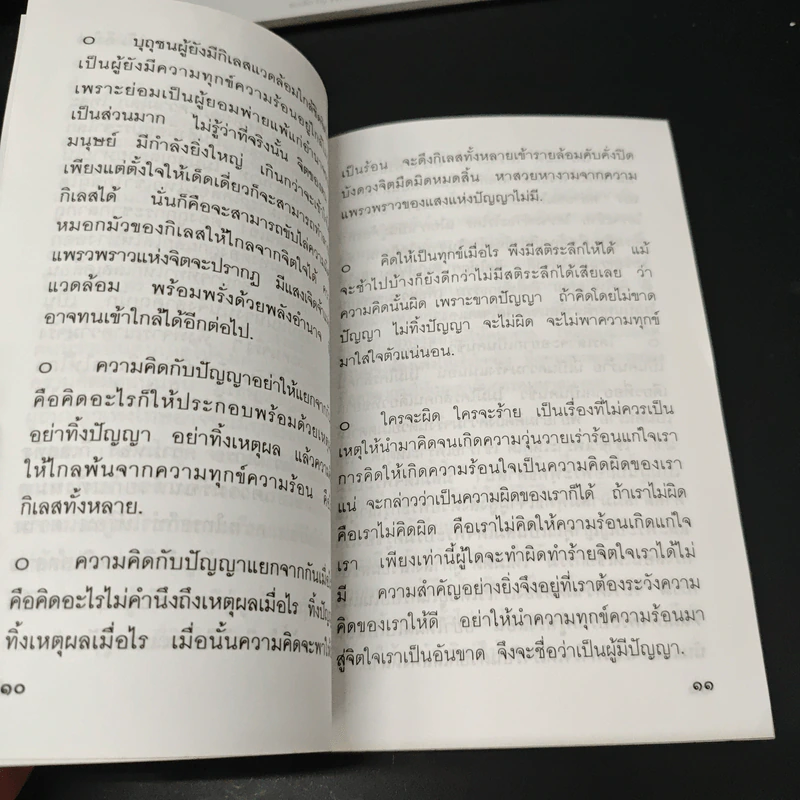 ๐ บุถุชนผู้ยังมีกิเลสแวดล้อมใกล้ชิด
เป็นผู้ยังมีความทุกข์ความร้อนอยู่
เพราะย่อมเป็นผู้ยอมพ่ายแพ้แก่อำนาจ
เป็นส่วนมาก ไม่รู้ว่าที่จริงนั้น จิตของ
มนุษย์ มีกำลังยิ่งใหญ่ เกินกว่าจะ
เพียงแต่ตั้งใจให้เด็ดเดี่ยวก็จะสามารถ
กิเลสได้ นั่นก็คือจะสามารถขับไล่ความ
หมอกมัวของกิเลสให้ไกลจากจิตใจได้
แพรวพราวแห่งจิตจะปรากฏ มีแสงเจิดจ้า
แวดล้อม พร้อมพรั่งด้วยพลังอำนาจ
อาจทนเข้าใกล้ได้อีกต่อไป.
๐ ความคิดกับปัญญาอย่าให้แยกจาก
คือคิดอะไรก็ให้ประกอบพร้อมด้วยเหตุ
อย่าทิ้งปัญญา อย่าทิ้งเหตุผล แล้วความ
ให้ไกลพ้นจากความทุกข์ความร้อน คือ
กิเลสทั้งหลาย.
๐ ความคิดกับปัญญาแยกจากกันเมื่อ
คือคิดอะไรไม่คำนึงถึงเหตุผลเมื่อไร ทิ้งปัญ
ทิ้งเหตุผลเมื่อไร เมื่อนั้นความคิดจะพา
๑๐
เป็นร้อน จะดึงกิเลสทั้งหลายเข้ารายล้อมคับคั่งปิด
บังดวงจิตมืดมิดหมดสิ้น หาสวยหางามจากความ
แพรวพราวของแสงแห่งปัญญาไม่มี.
๐ คิดให้เป็นทุกข์เมื่อไร พึงมีสติระลึกให้ได้ แม้
จะช้าไปบ้างก็ยังดีกว่าไม่มีสติระลึกได้เสียเลย ว่า
ความคิดนั้นผิด เพราะขาดปัญญา ถ้าคิดโดยไม่ขาด
ปัญญา ไม่ทิ้งปัญญา จะไม่ผิด จะไม่พาความทุกข์
มาใส่ใจตัวแน่นอน.
๐ ใครจะผิด ใครจะร้าย เป็นเรื่องที่ไม่ควรเป็น
เหตุให้นำมาคิดจนเกิดความวุ่นวายเร่าร้อนแก่ใจเรา
การคิดให้เกิดความร้อนใจเป็นความคิดผิดของเรา
แน่ จะกล่าวว่าเป็นความผิดของเราก็ได้ ถ้าเราไม่ผิด
คือเราไม่คิดผิด คือเราไม่คิดให้ความร้อนเกิดแก่ใจ
เรา เพียงเท่านี้ผู้ใดจะทำผิดทำร้ายจิตใจเราได้ไม่
มี ความสำคัญอย่างยิ่งจึงอยู่ที่เราต้องระวังความ
คิดของเราให้ดี อย่าให้นำความทุกข์ความร้อนมา
สู่จิตใจเราเป็นอันขาด จึงจะชื่อว่าเป็นผู้มีปัญญา.
๑๑